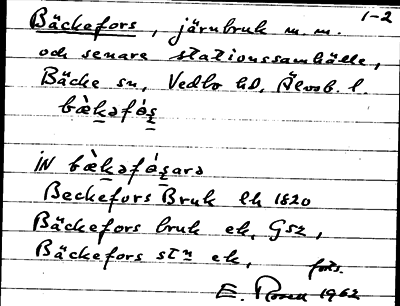 1-2
Bäckefors, järnbruk m. m.
och senare stationssamhälle,
Bäcke sn, Vedbo hd, Älvsb. l.
bæ̀kəfós̱
IN bæ̀kəfós̱ara
Beckefors Bruk lk 1820
Bäckefors bruk ek, Gsz,
Bäckefors stn ek,
forts.
E. Rosen 1962